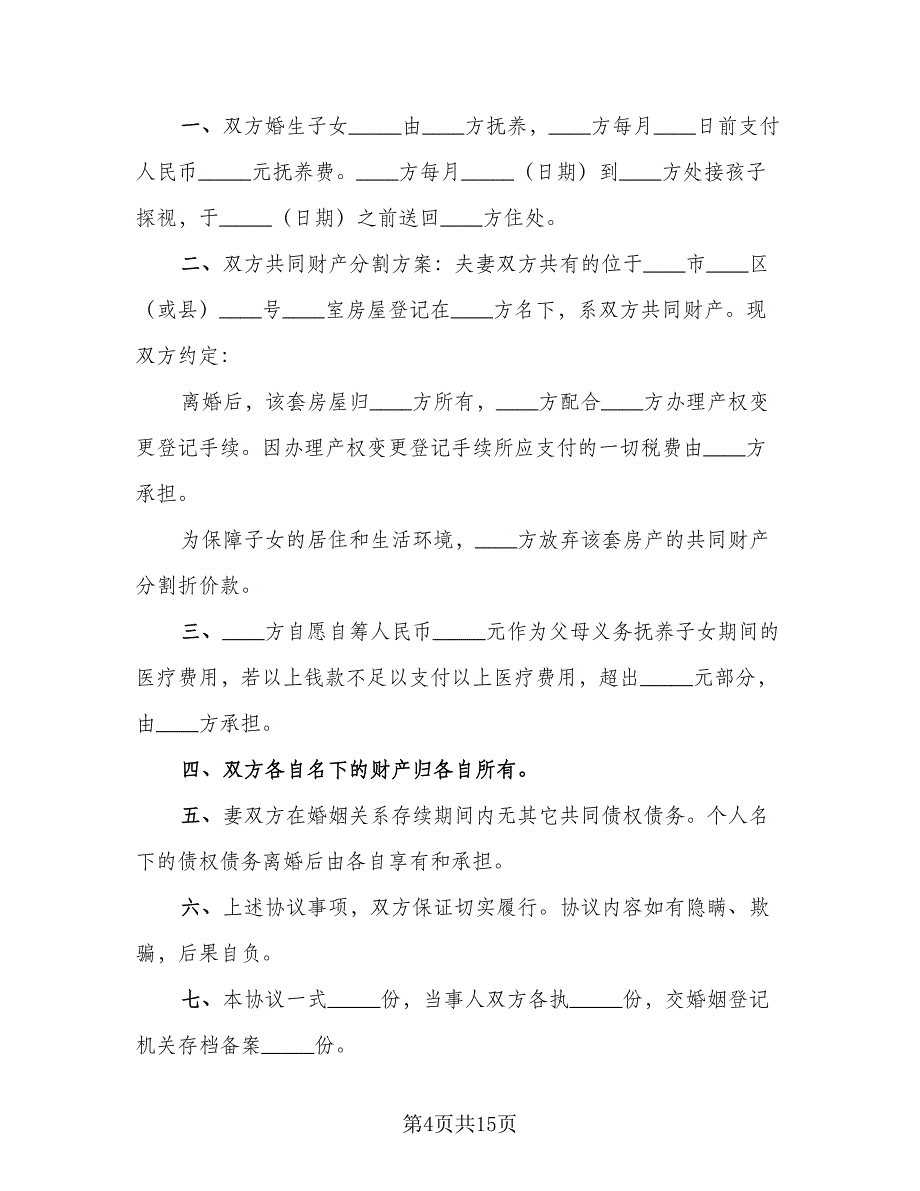 一、双方婚生子女_____由____方抚养，____方每月____日前支付
人民币_____元抚养费。____方每月_____（日期）到____方处接孩子
探视，于_____（日期）之前送回____方住处。
二、双方共同财产分割方案：夫妻双方共有的位于____市____区
（或县）____号____室房屋登记在____方名下，系双方共同财产。现
双方约定：
离婚后，该套房屋归____方所有，____方配合____方办理产权变
更登记手续。因办理产权变更登记手续所应支付的一切税费由____方
承担。
为保障子女的居住和生活环境，____方放弃该套房产的共同财产
分割折价款。
三、____方自愿自筹人民币_____元作为父母义务抚养子女期间的
医疗费用，若以上钱款不足以支付以上医疗费用，超出_____元部分，
由____方承担。
四、双方各自名下的财产归各自所有。
五、妻双方在婚姻关系存续期间内无其它共同债权债务。个人名
下的债权债务离婚后由各自享有和承担。
六、上述协议事项，双方保证切实履行。协议内容如有隐瞒、欺
骗，后果自负。
七、本协议一式_____份，当事人双方各执_____份，交婚姻登记
机关存档备案_____份。
第4页共15页